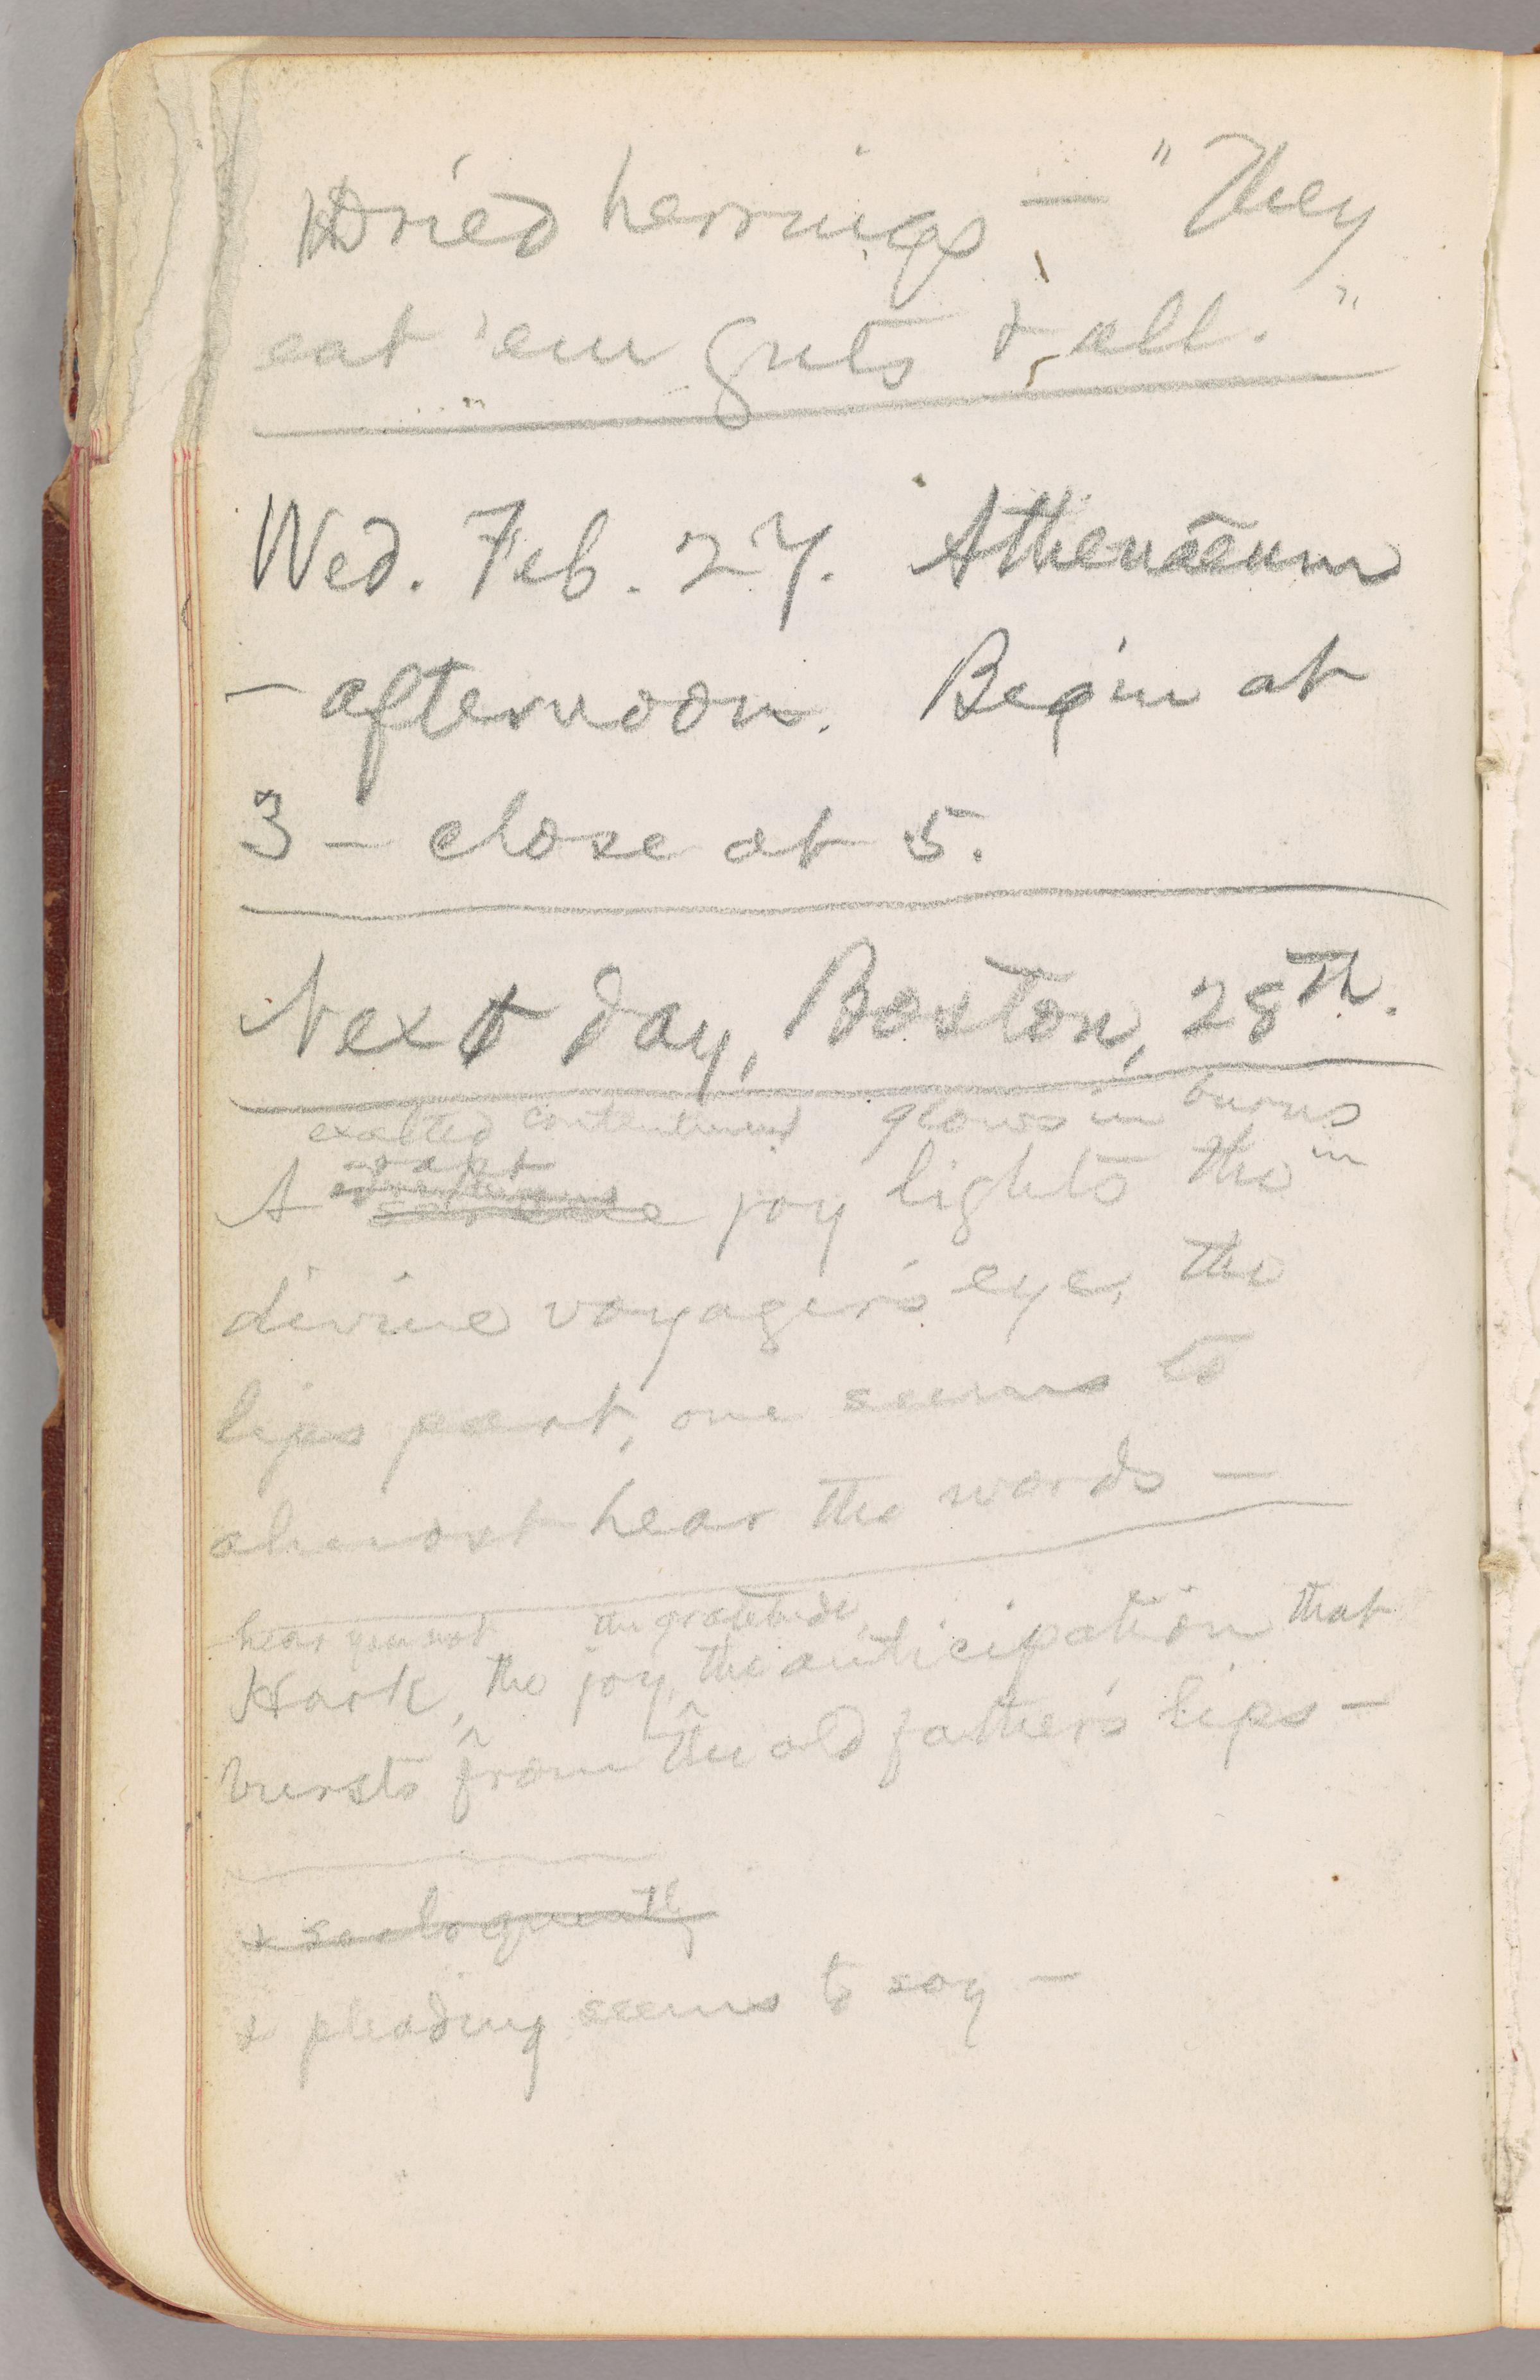 Dried herrings — "They
eat 'em guts & all."
Wed. Feb. 27. Athenaeum
— afternoon. Begin at
3 — close at 5.
Next day, Boston, 28th.
exalted contentment glows in burns
rapt in
A serene joy lights the
divine voyager's eye, the
lips part, one seems to
almost hear the words —
hear you not the gratitude,
Hark, the joy, the anticipation that
bursts from the old father's lips —
& so eloquently
& pleading seems to say —